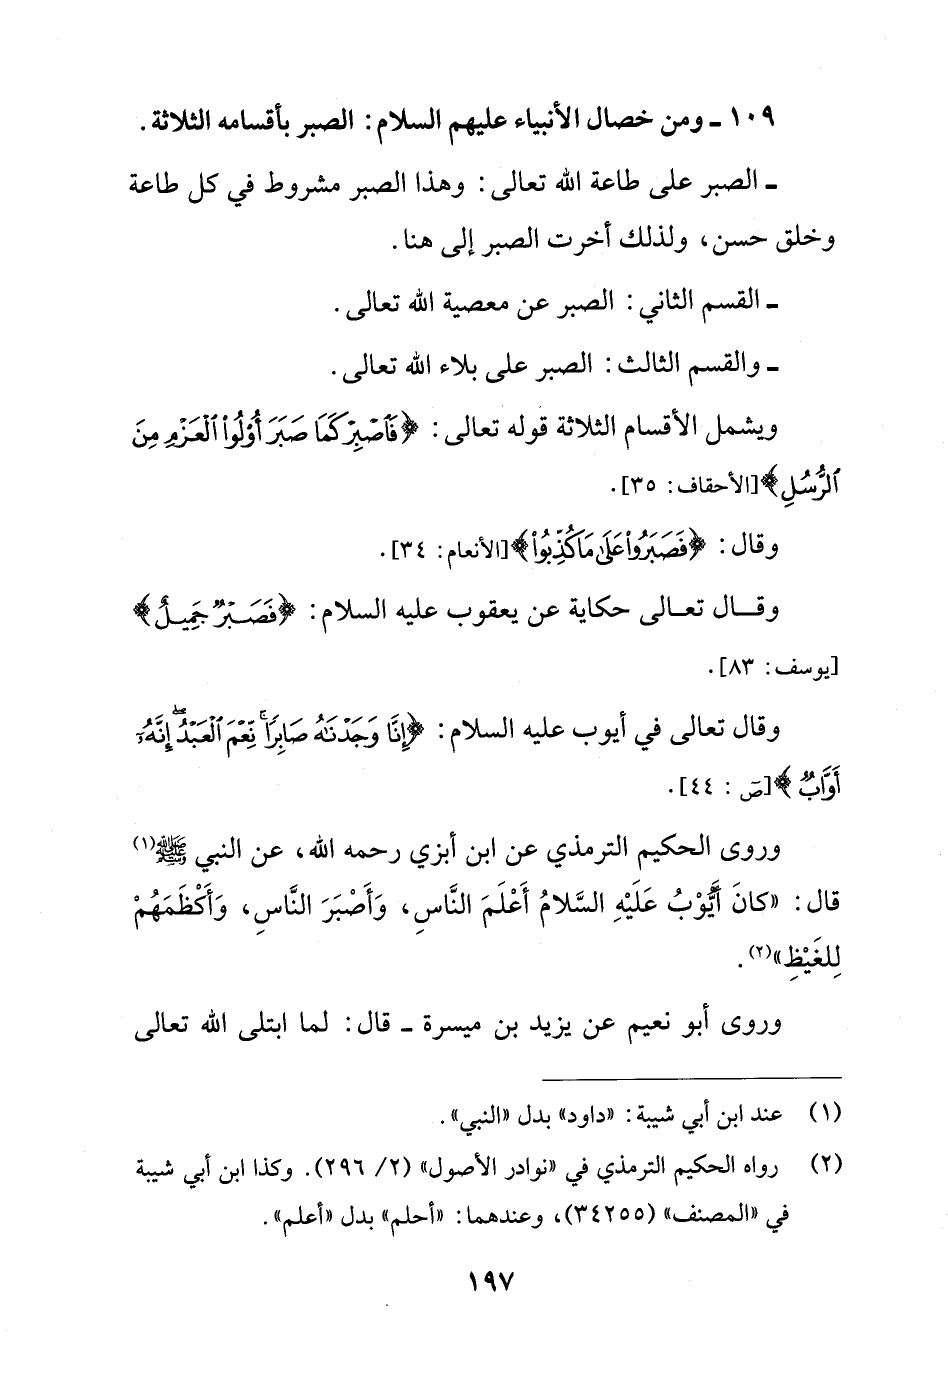 ١٠٩ ـ ومن خصال الأنبياء عليهم السلام: الصبر بأقسامه الثلاثة.
ـ الصبر على طاعة الله تعالى: وهذا الصبر مشروط في كل طاعة
وخلق حسن، ولذلك أخرت الصبر إلى هنا.
ـ القسم الثاني: الصبر عن معصية الله تعالى.
ـ والقسم الثالث: الصبر على بلاء الله تعالى.
ويشمل الأقسام الثلاثة قوله تعالى: ﴿فَٱصْبِرْ كَمَا صَبَرَ أُوْلُواْ ٱلْعَزْمِ مِنَ
ٱلرُّسُلِ﴾[الأحقاف: ٣٥].
وقال: ﴿فَصَبَرُواْ عَلَىٰ مَا كُذِّبُواْ﴾[الأنعام: ٣٤].
وقـــال تعـــالى حكاية عن يعقوب عليه السلام: ﴿فَصَبْرٌ جَمِيلٌ﴾
[يوسف: ٨٣].
وقال تعالى في أيوب عليه السلام: ﴿إِنَّا وَجَدْنَٰهُ صَابِرًا ۚ نِّعْمَ ٱلْعَبْدُ ۖ إِنَّهُۥٓ
أَوَّابٌ﴾[صَ: ٤٤].
وروى الحكيم الترمذي عن ابن أبزي رحمه الله، عن النبي ﷺ(١)
قال: «كانَ أَيُّوْبُ عَلَيْهِ السَّلامُ أَعْلَمَ النَّاسِ، وَأَصْبَرَ النَّاسِ، وَأَكْظَمَهُمْ
لِلغَيْظِ»(٢).
وروى أبو نعيم عن يزيد بن ميسرة ـ قال: لما ابتلى الله تعالى
(١) عند ابن أبي شيبة: «داود» بدل «النبي».
(٢) رواه الحكيم الترمذي في «نوادر الأصول» (٢/ ٢٩٦). وكذا ابن أبي شيبة
في «المصنف» (٣٤٢٥٥)، وعندهما: «أحلم» بدل «أعلم».
١٩٧